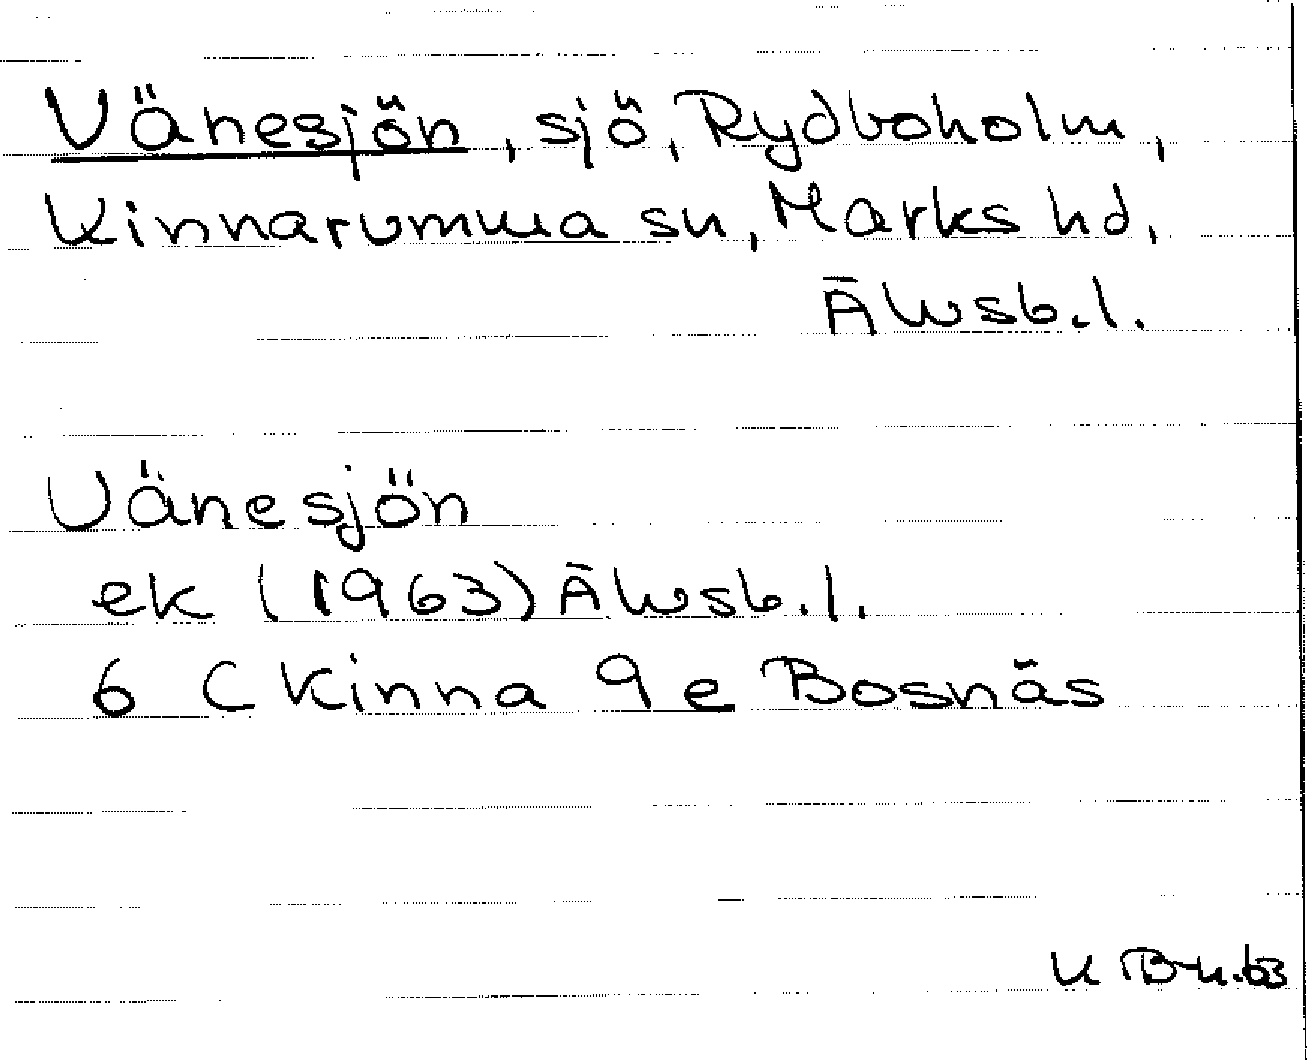 Vänesjön, sjö, Rydboholm,
Kinnarumma sn, Marks hd,
Älvsb.l.
Vänesjön
ek (1963) Älvsb.l.
6 C Kinna 9 e Bosnäs
K B-n.63